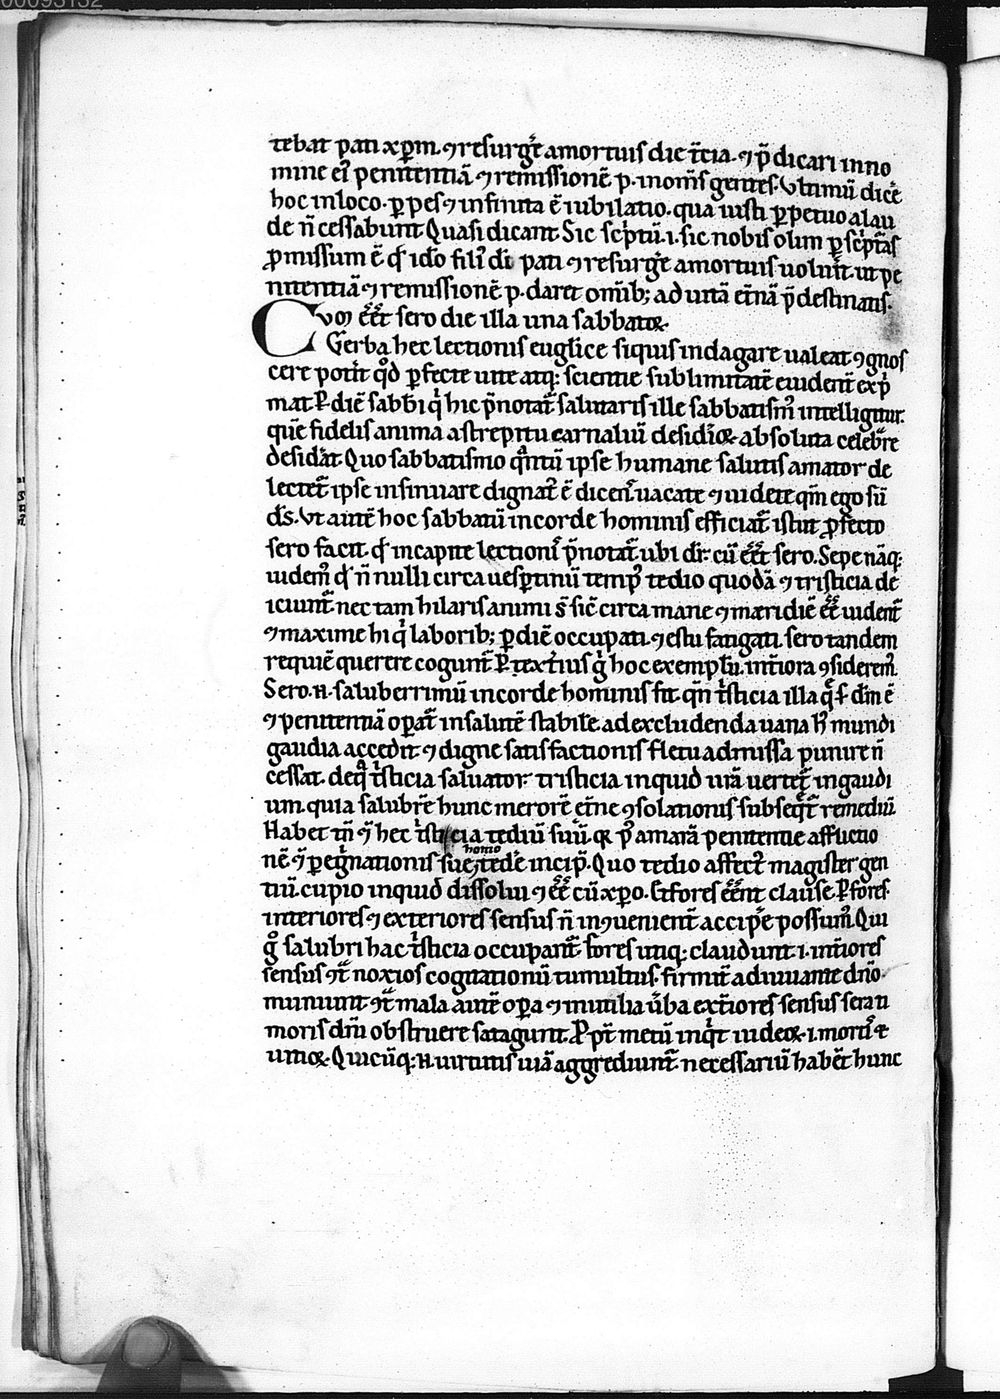 00095132
tebat pati xp̄m. ⁊ resurg̅e amortuis die t̅cia. ⁊ p̄dicari in no
mine ei᷒ penitentiā ⁊ remissionē p. in om̄s gentes. Vltimū dic̅e
hoc in loco. ꝑpes ⁊ infinita ē iubilatio. qua iusti ꝑpetuo a lau
de n̄ cessabunt Quasi dicant Sic sc̅ptū .i. sic nobis olim ꝑ sc̅pt̅as
ꝓmissum ē qd̅ ido̅ fili᷒ di̅ pati ⁊ resurg̅e amortuis uoluit̅. ut pe
nitentiā ⁊ remissionē p. daret om̅ib; ad uitā et̅nā p̄destinatis.
Cvm e̅et sero die illa una sabbatoꝝ.
Uerba hec lectionis eu̅glice siquis indagare ualeat ꝯgnos
cere potit̅ qd̅ ꝑfecte uite atq; scientie sublimitatē euident̅ exp̅
mat ꝑ diē sabb̅i q̅ hic p̄notat̅ salutaris ille sabbatism᷒ intelligitur.
quē fidelis anima a strepitu carnaliū desid̅ioꝝ absoluta celebr̅e
desid̅at. Quo sabbatismo q̅ntū ipse humane salutis amator de
lectet̅ ipse insinuare dignat᷒ ē dicen̅ uacate ⁊ uidete qm̅ ego sū
ds̅. Vt autē hoc sabbatū in corde hominis efficiat̅ istut ꝓfecto
sero facit. qd̅ in capite lectionis̅ p̄notat̅ ubi dr̅. cū e̅et sero. Sepe nāq;
uidem᷒ qd̅ n̄nulli circa uesꝑtinū temp᷒ tedio quodā ⁊ tristicia de
iciunt̅ nec tam hilaris animi s̄ sic̅ circa mane ⁊ meridiē e̅e uident̅
⁊ maxime hi q̅ laborib; ꝑ diē occupati. ⁊ estu fatigati. sero tandem
requiē querere cogunt̅
Sero .n. saluberrimū in corde hominis fit. qn̅ t̅sticia illa q̅ s̅ dm̅ ē
⁊ penitentiā oꝑat̅ in salutē stabilē. ad excludenda uana h᷒ mundi
gaudia accedit. ⁊ digne satisfactionis fletu admissa punire n̄
cessat. de q̅ t̅sticia saluator tristicia inquid ur̅a uertet̅ in gaudi
um. quia salubr̅e hunc merorē et̅ne ꝯsolationis subseq̅t̅ remediū.
Habet tn̅ ⁊ hec t̅sticia tediū suū. q̅ p̅ amarā penitentie afflictio
nē ⁊ ꝑeg̅nationis sue, tede̅ incip̅. Quo tedio affect᷒ magister gen
homo
tiū. cupio inquid dissolui ⁊ e̅e cū xp̅o. Et fores e̅ent clause. ꝑ fores
interiores ⁊ exteriores sensus n̄ inꝯuenient̅ accip̅e possum᷒. Qui
g̊ salubri hac t̅sticia occupant̅. fores utiq; claudunt .i. int̅iores
sensus ꝯt̅ noxios cogitationū tumultus. firmit̅ adiuuante dn̅o.
muniunt ꝯt̅ mala autē oꝑa ⁊ inutilia u̅ba ext̅iores sensus sera ti
moris dn̅i obstruere satagunt. ꝓpt̅ metū inq̅t iudeoꝝ .i. mort̅ ⁊
uitioꝝ. Quicūq; .n. uirtutis uiā aggrediunt̅ necessariū habet̅ hunc